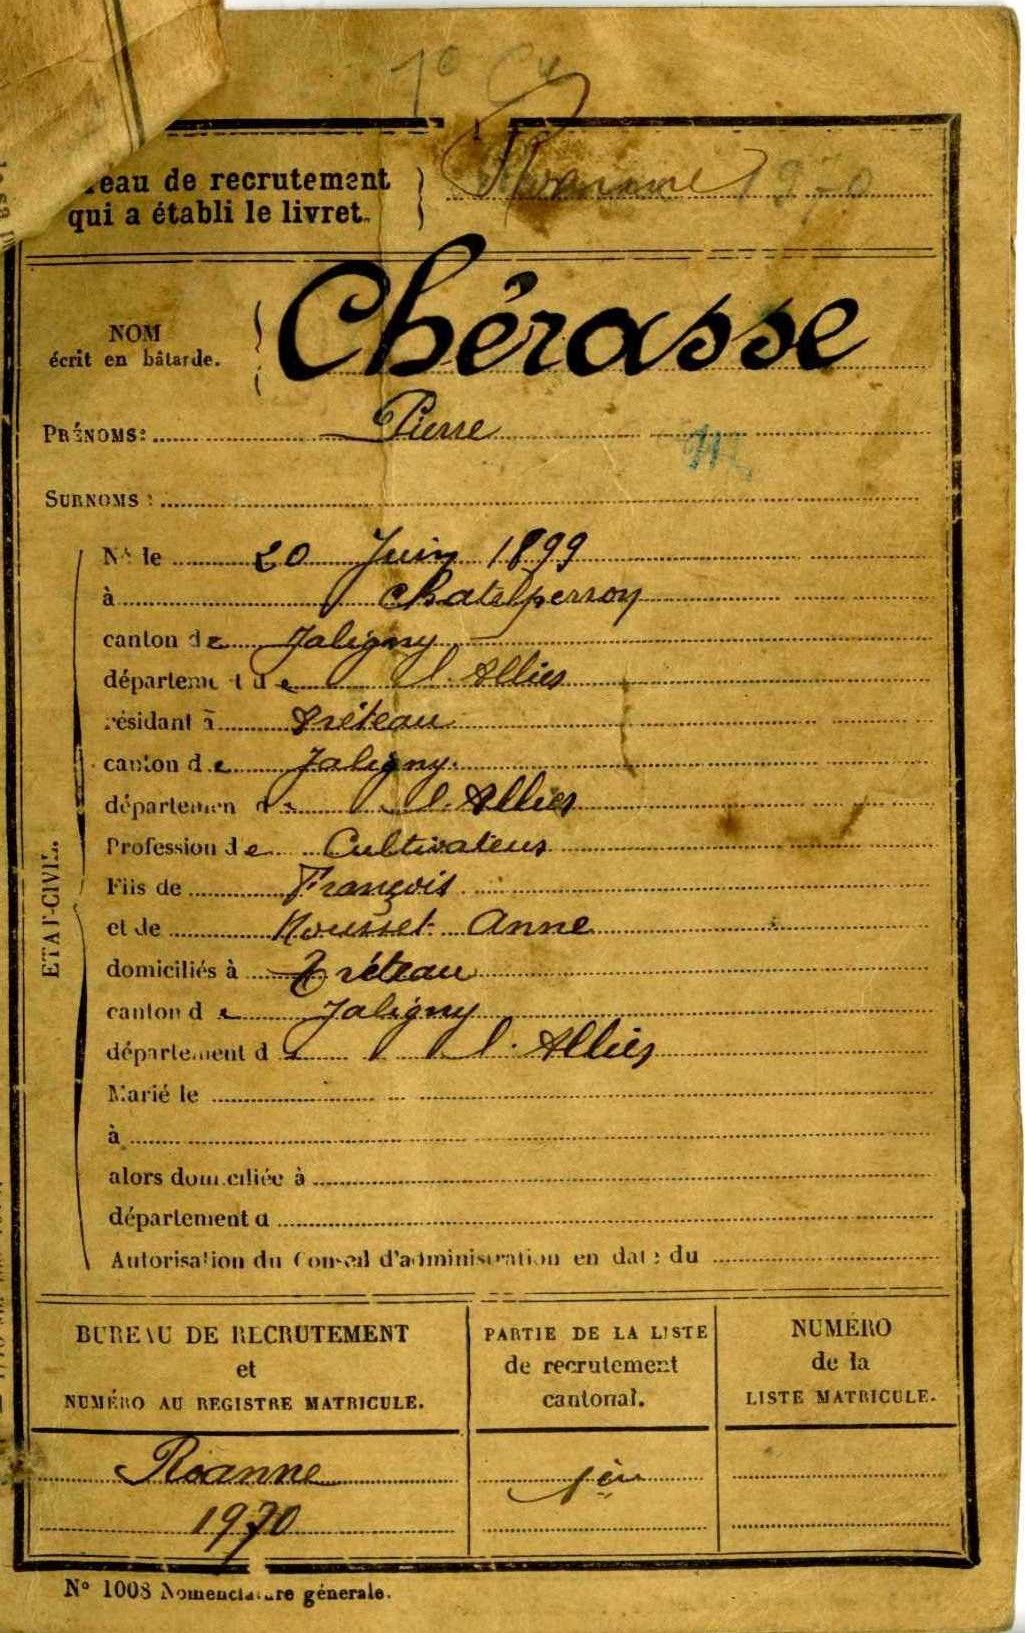 1º Cie
reau de recrutement
qui a établi le livret.
Roanne 1970
Chérasse
NOM
écrit en bâtarde.
PRÉNOMS: Pierre
SURNOMS :
Né le 20 Juin 1899
à Chatelperron
canton de Jaligny
département de l'Allier
résidant à Tréteau
canton de Jaligny
département de l'Allier
Profession de Cultivateur
Fils de François
et de Mousset Anne
domiciliés à Tréteau
canton de Jaligny
département de l'Allier
Marié le
à
alors domiciliée à
département d
Autorisation du Conseil d'administration en date du
ETAT-CIVIL.
BUREAU DE RECRUTEMENT
et
NUMÉRO AU REGISTRE MATRICULE.
PARTIE DE LA LISTE
de recrutement
cantonal.
NUMÉRO
de la
LISTE MATRICULE.
Roanne
1970
1ère
Nº 1008 Nomenclature génerale.